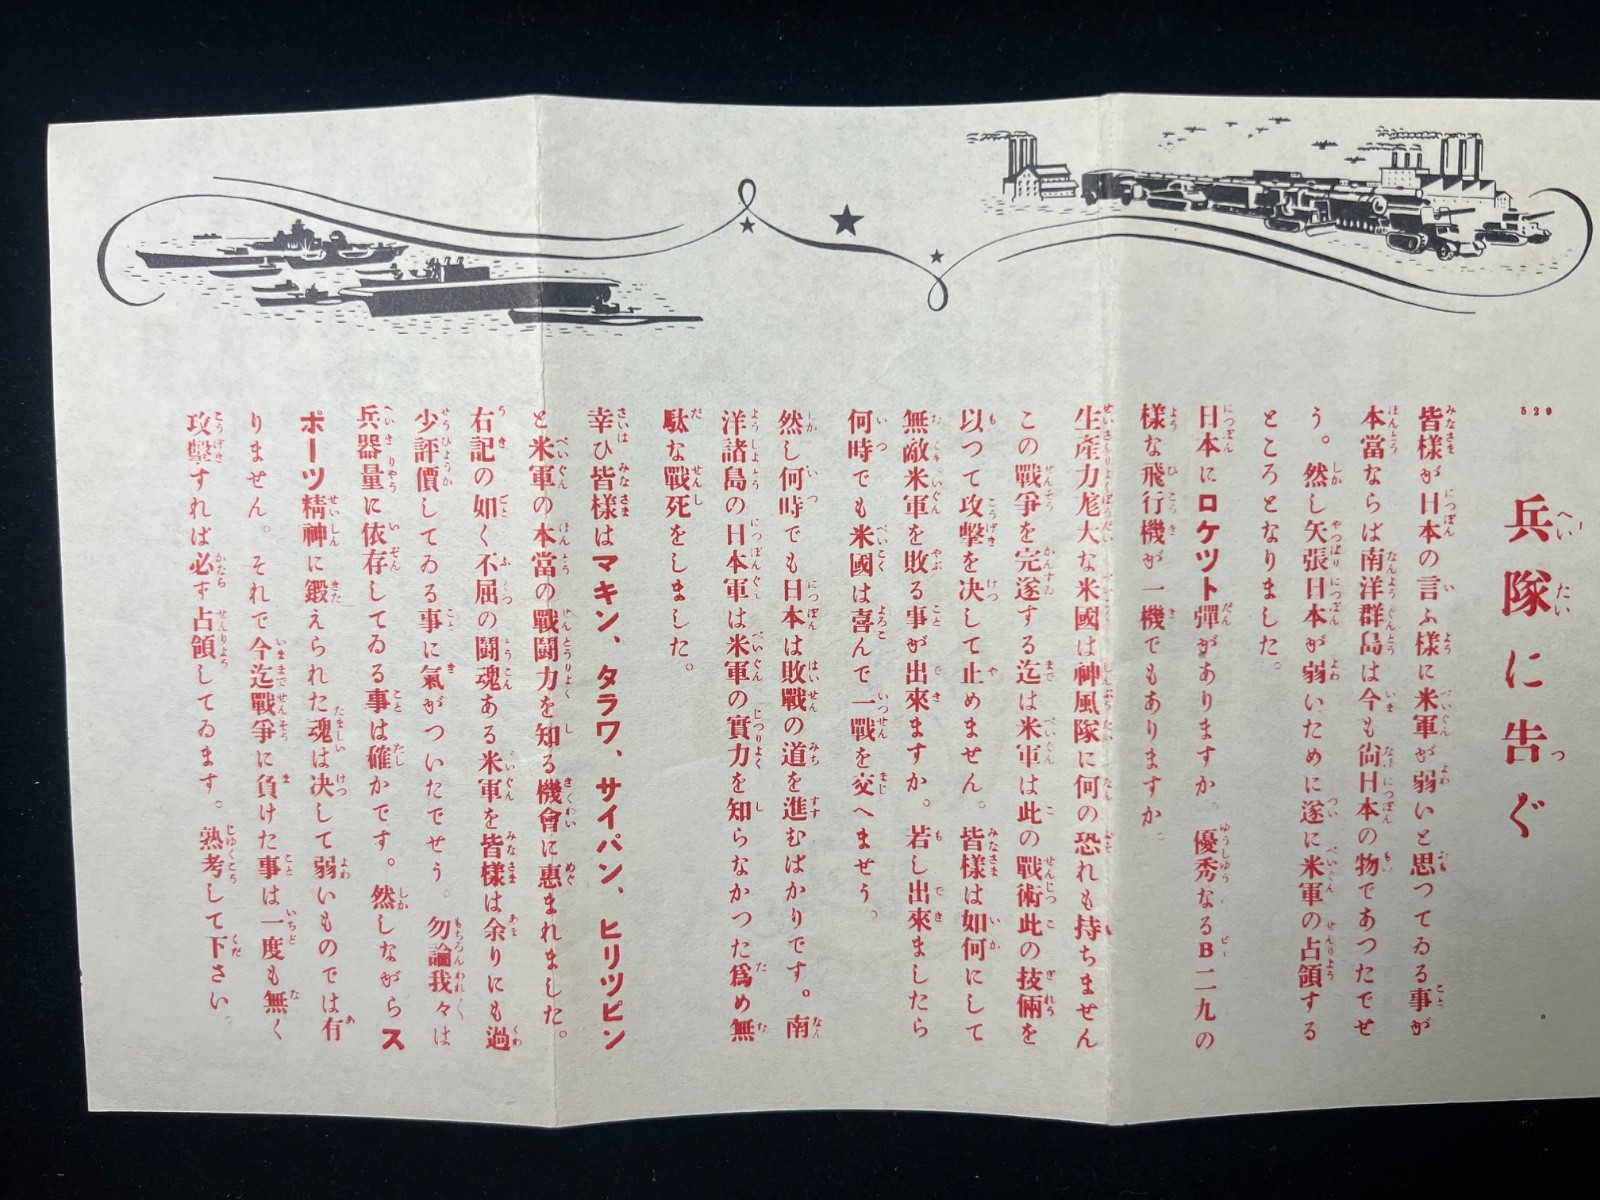 529
兵隊に告ぐ
皆様が日本の言ふ様に米軍が弱いと思つてゐる事が
本當ならば南洋群島は今も尚日本の物であつたでせ
う。然し矢張日本が弱いために遂に米軍の占領する
ところとなりました。
日本にロケツト彈がありますか 優秀なるB二九の
様な飛行機が一機でもありますか。
生產力尨大な米國は神風隊に何の恐れも持ちません
この戰爭を完遂する迄は米軍は此の戰術此の技倆を
以つて攻擊を决して止めません。皆様は如何にして
無敵米軍を敗る事が出來ますか。若し出來ましたら
何時でも米國は喜んで一戰を交へませう。
然し何時でも日本は敗戰の道を進むばかりです。南
洋諸島の日本軍は米軍の實力を知らなかつた爲め無
駄な戰死をしました。
幸ひ皆様はマキン、タラワ、サイパン、ヒリツピン
と米軍の本當の戰闘力を知る機會に惠まれました。
右記の如く不屈の闘魂ある米軍を皆様は余りにも過
少評價してゐる事に氣がついたでせう。勿論我々は
兵器量に依存してゐる事は確かです。然しながらス
ポーツ精神に鍛えられた魂は决して弱いものでは有
りません。それで今迄戰爭に負けた事は一度も無く
攻擊すれば必ず占領してゐます。熟考して下さい。